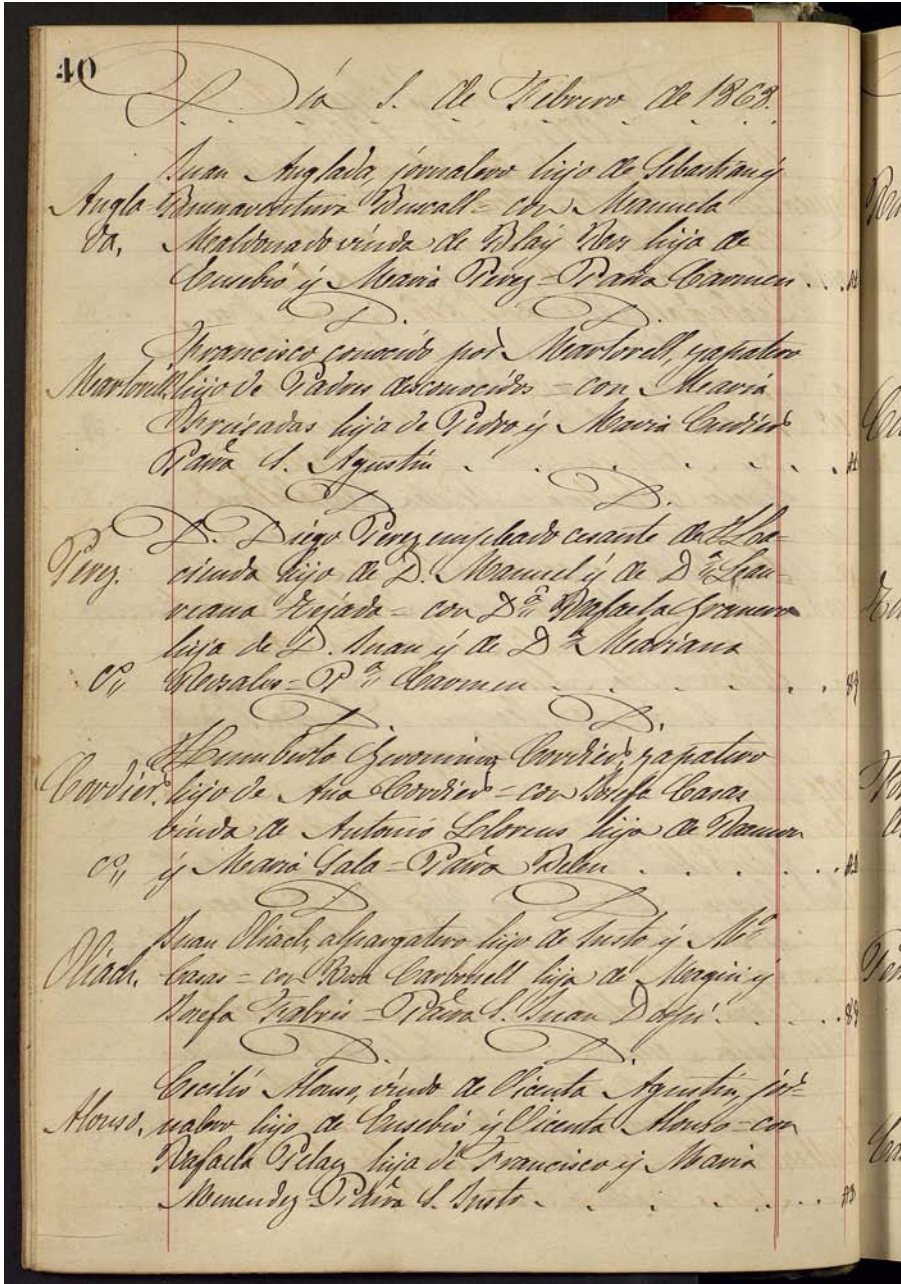 40
Día 1. de Febrero de 1868.
Juan Anglada, jornalero hijo de Sebastian y
Angla- Buenaventura = con Manuela
da, Maldonado viuda de Blay hija de
Eusebio y Maria Perez = Parra Carmen
D. D.
Francisco conocido por Martorell, zapatero
Martorell. hijo de Padres desconocidos = con Maria
Bruguadas hija de Pedro y Maria
Parra S. Agustin
D. D.
D. Diego Perez empleado cesante de Ha-
Perez. cienda hijo de D. Manuel y de Da Lau-
reana Tejada = con Da Rafaela Granero
hija de D. Juan y de Da Mariana
Rosales = Pa Carmen 89
D. D.
Humberto Geronimo Cordier, zapatero
Cordier. hijo de Ana Cordier = con Josefa Casas
viuda de Antonio Llorens hija de Ramon
y Maria Sala = Parra Belen
D. D.
Juan Oliach, alpargatero hijo de Justo y Ma
Oliach. Casas = con Rosa Carbonell hija de Magin y
Josefa Fabres = Parra S. Juan D 89
D. D.
Cecilio Alonso, viudo de Vicenta Agustin, jor-
Alonso. nalero hijo de Eusebio y Vicenta Alonso = con
Rafaela Pelaez hija de Francisco y Maria
Menendez = Parra S. Justo